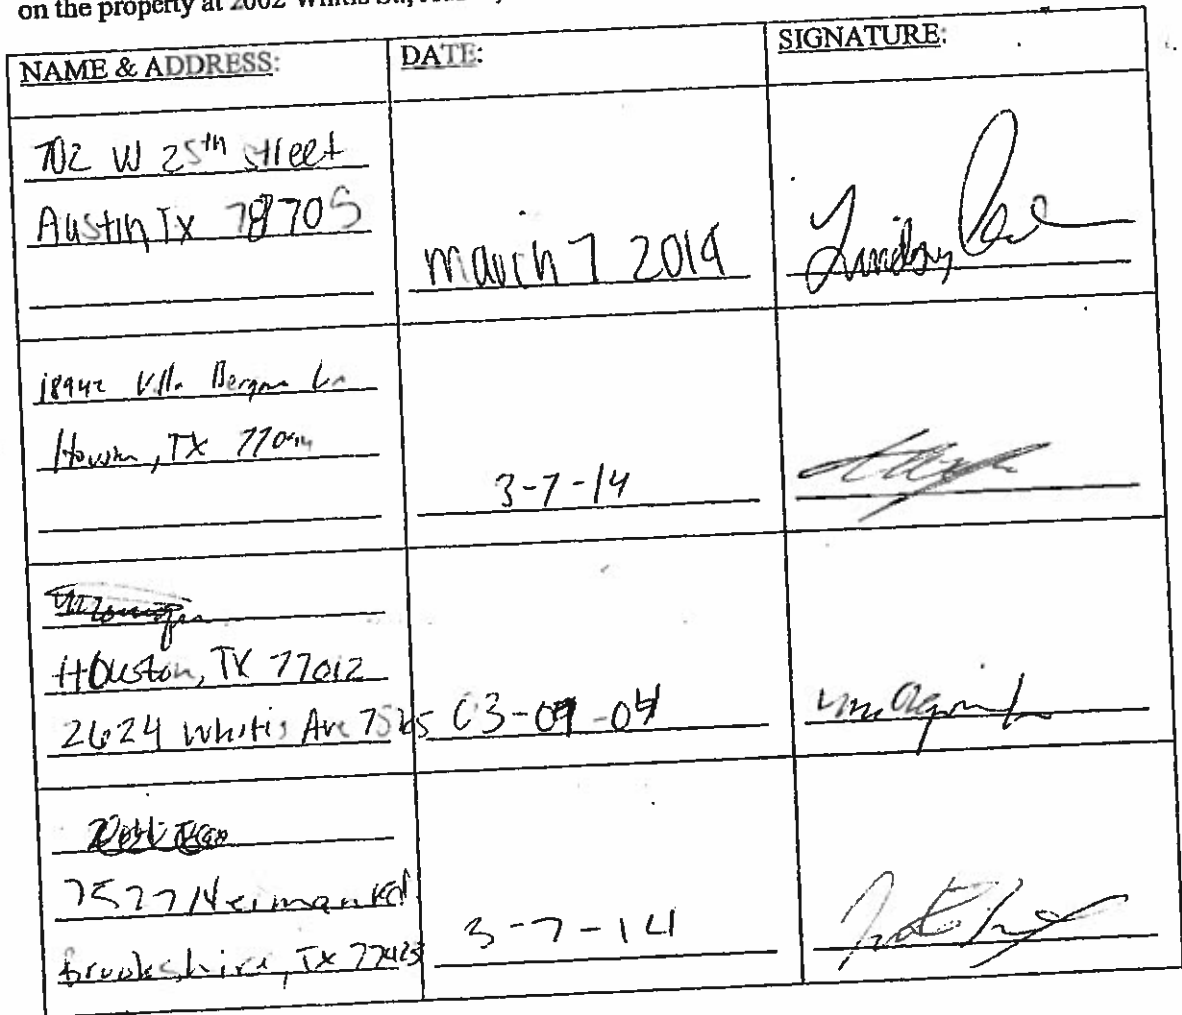 on the property at 2002 Whitis
NAME & ADDRESS: DATE: SIGNATURE:
702 W 25th street
Austin, Tx 78705
march 7 2014
Lindsay
18942 Villa Bergamo Ln
Houston, TX 770
3-7-14
Houston, TX 77012
2624 Whitis Ave 03-07-04
7577 Neiman Rd
Brookshire, TX 77423
3-7-14